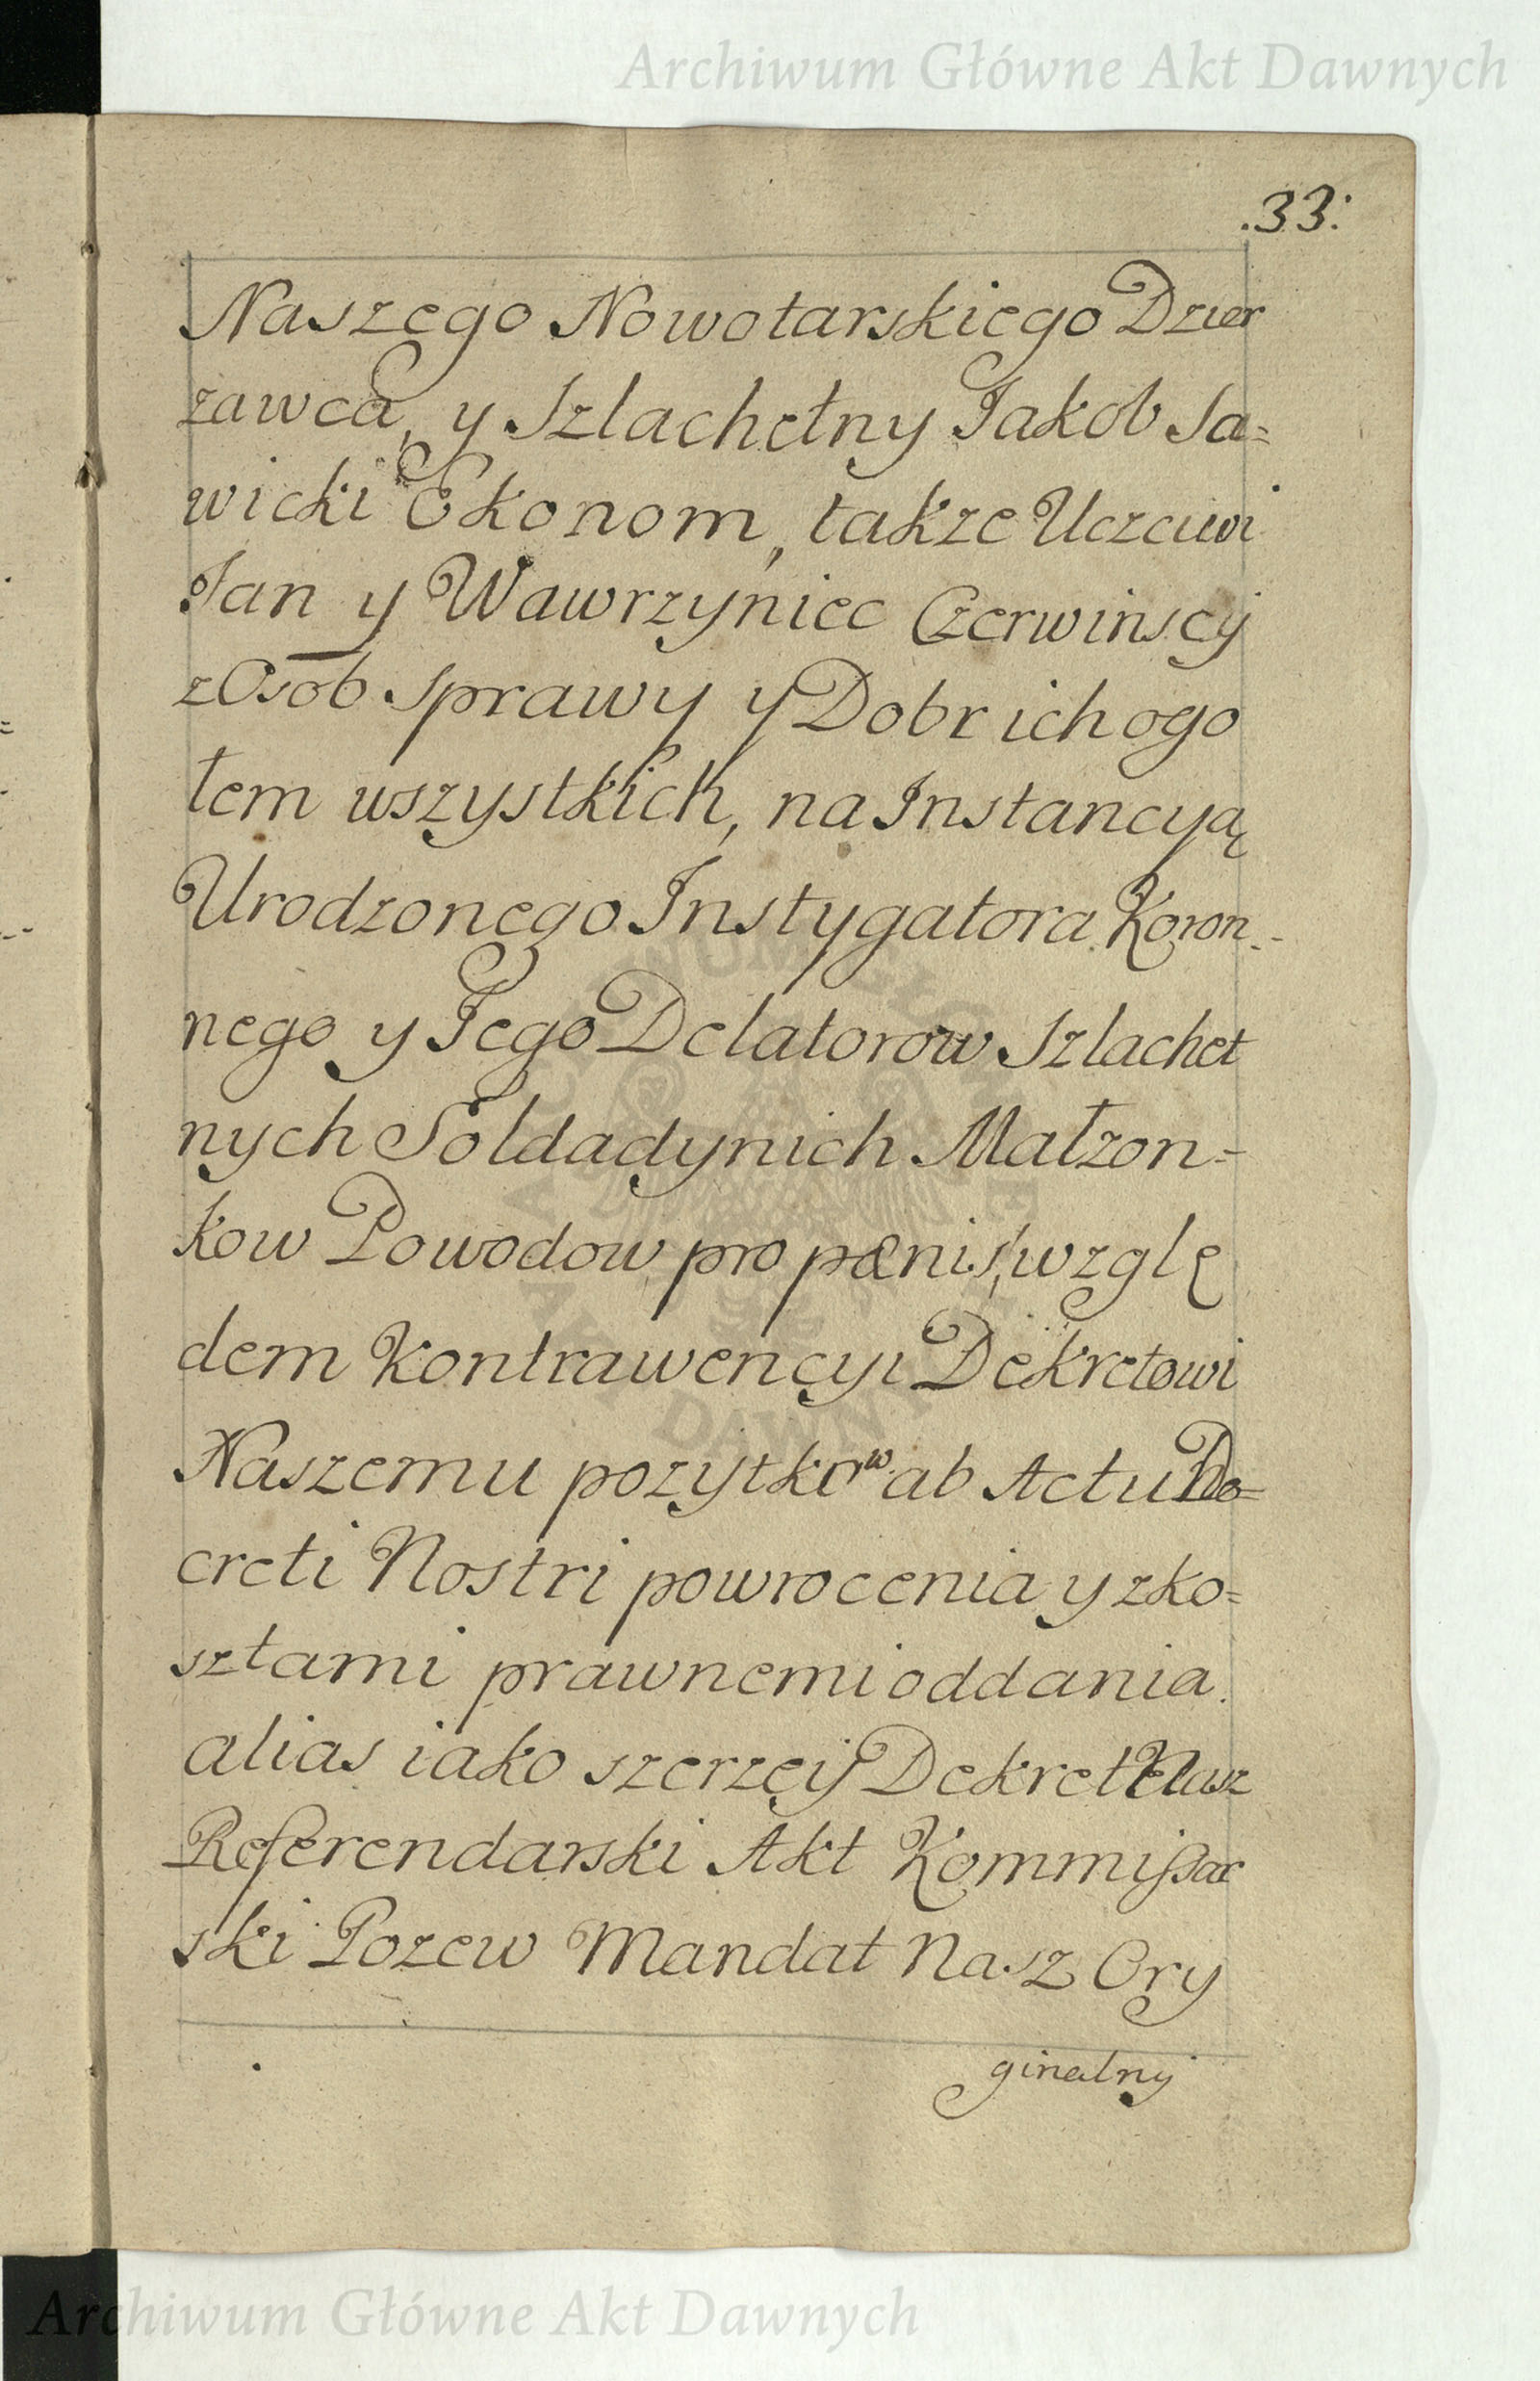 Archiwum Główne Akt Dawnych
.33:
Naszego Nowotarskiego Dzier
zawca, y Szlachetny Jakob Sa=
wicki Ekonom, takze Uczciwi
Jan y Wawrzyniec Czerwinscy
z Osob Sprawy y Dobr ich ogo
łem wszystkich, na Instancyą
Urodzonego Instygatora Koron=
nego y Jego Delatorow Szlachet
nych Soldadynich Małzon=
kow Powodow pro pænis, wzglę
dem Kontrawencyi Dekretowi
Naszemu pozytkow ab Actu De=
creti Nostri powrocenia y zko=
sztami prawnemi oddania.
alias iako szerzey Dekret Nasz
Referendarski Akt Kommissar
ski Pozew Mandat Nasz Ory
ginalny
Archiwum Główne Akt Dawnych